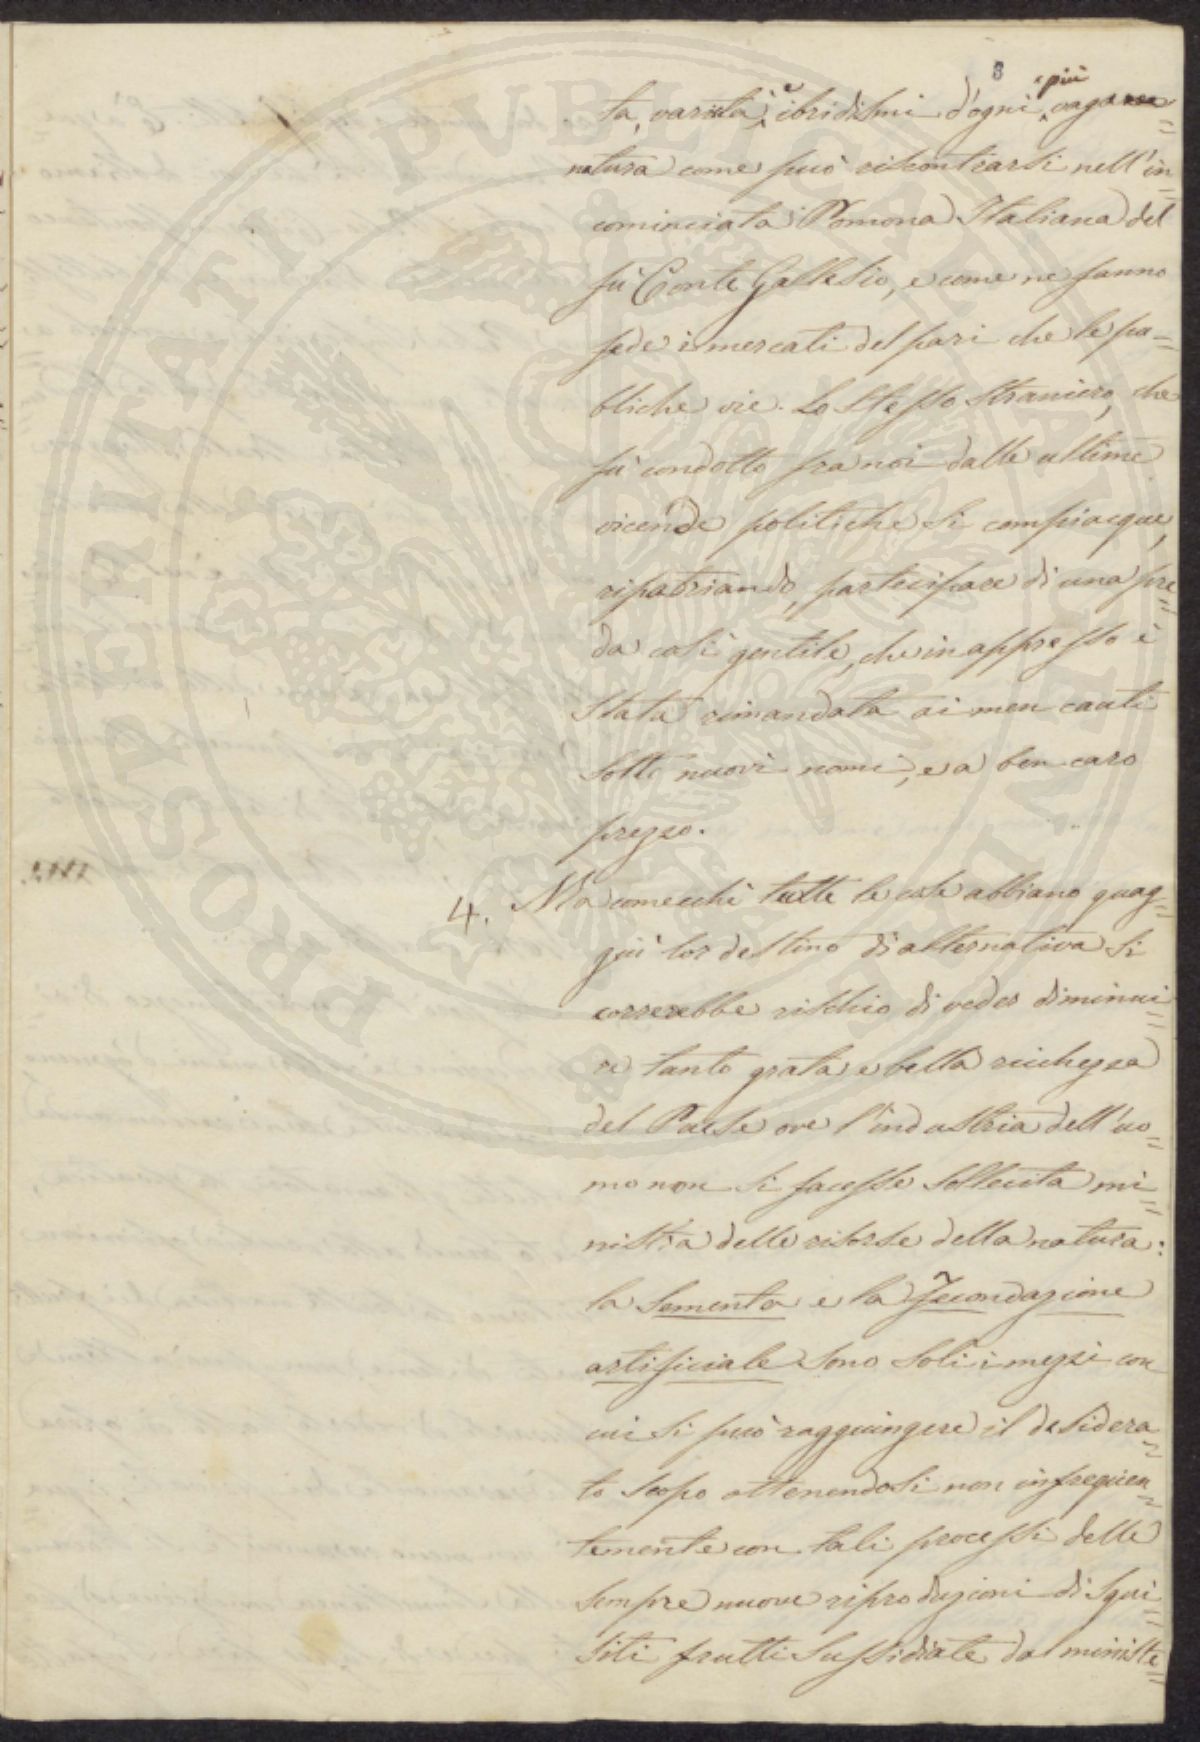 8
ta, varietà, e ibridismi d'ogni più vaga
natura come può riscontrarsi nell'in=
cominciata Pomona Italiana del
fù Conte Gallesio, e come ne fanno
fede i mercati del pari che le pu=
bliche vie. Lo stesso straniero, che
fù condotto fra noi dalle ultime
vicende politiche si compiacque,
ripatriando, partecipare di una pre=
da così gentile, che in appresso è
stata rimandata ai men cauti
sotto nuovi nomi, e a ben caro
prezzo.
4. Ma comecchè tutte le cose abbiano quag=
giù lor destino di alternativa si
correrebbe rischio di veder diminui=
re tanto grata e bella ricchezza
del Paese ove l'industria dell'uo=
mo non si facesse sollecita mi=
nistra delle risorse della natura:
la Sementa e la Fecondazione
artificiale sono soli i mezzi con
cui si può raggiungere il desidera=
to scopo ottenendosi non infrequen=
temente con tali processi delle
sempre nuove riproduzioni di squi=
siti frutti sussidiate dal ministe=
PROSPERITATI PUBLICAE AUGENDAE